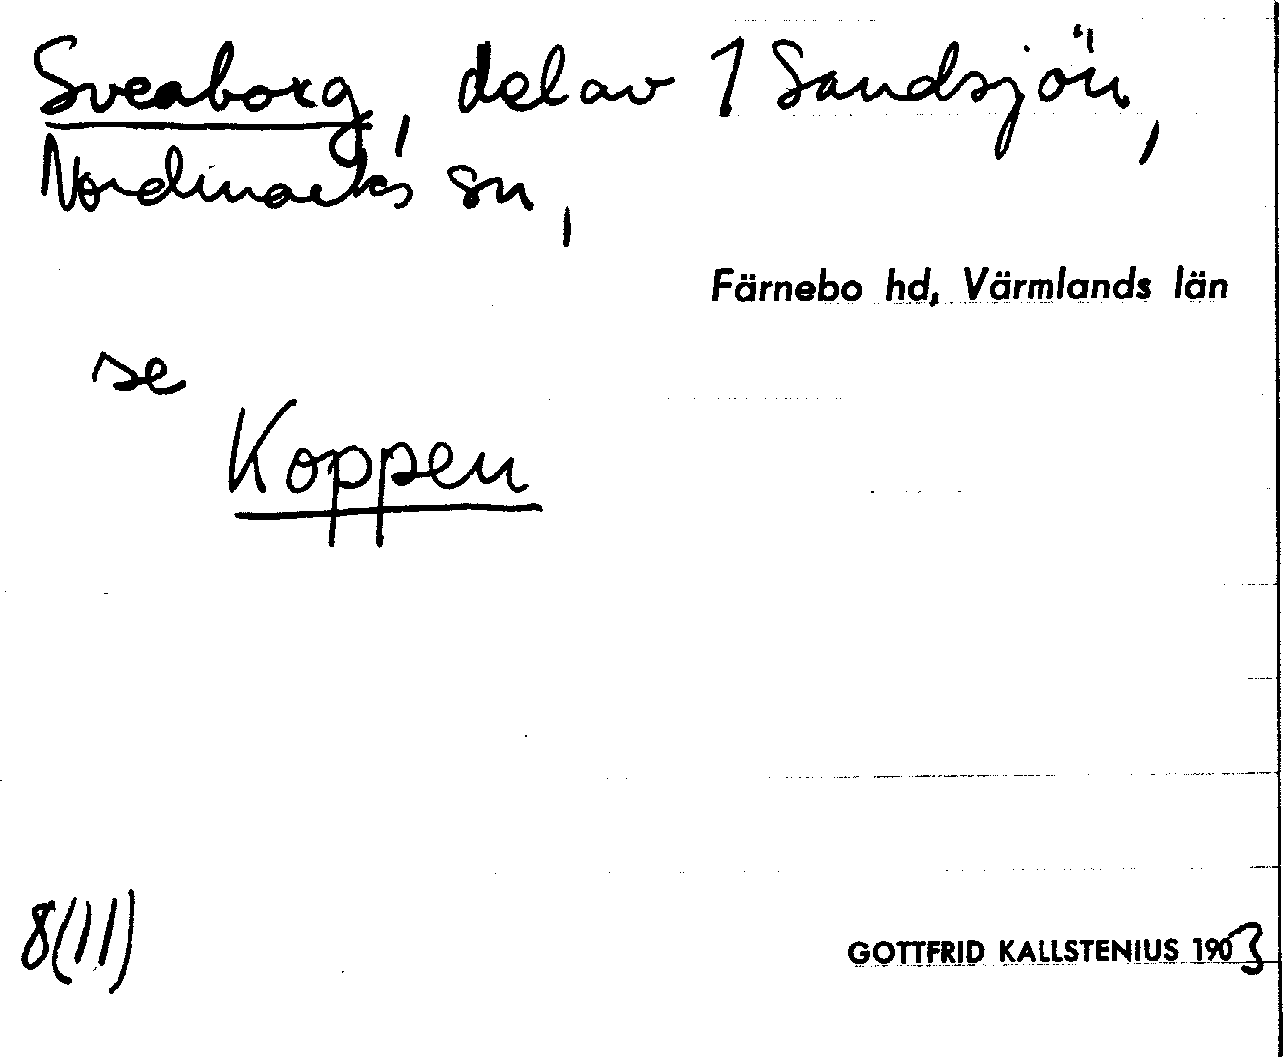 Sveaborg, del av 1 Sandsjön,
Nordmarks sn,
Färnebo hd, Värmlands län
se
Koppen
8(11)
GOTTFRID KALLSTENIUS 1903